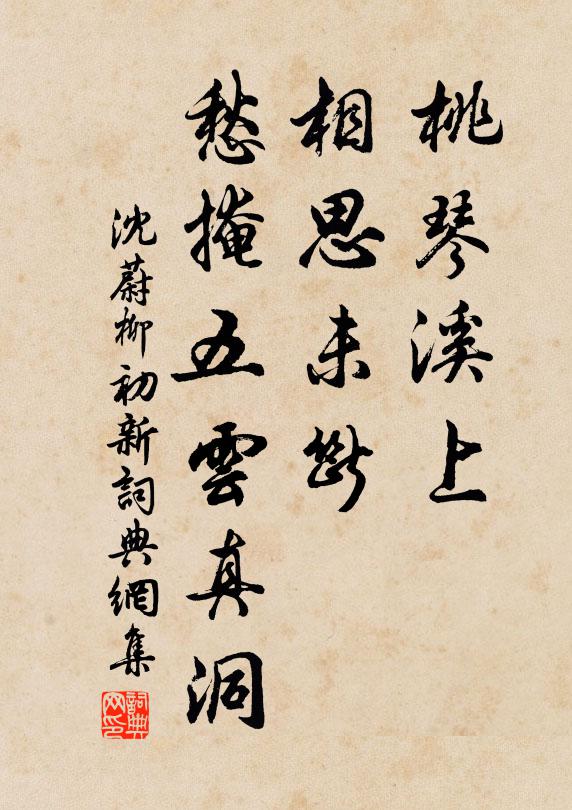 桃琴溪上
相思未斷
愁掩五雲真洞
沈蔚柳初新詞典網集
詞典網印